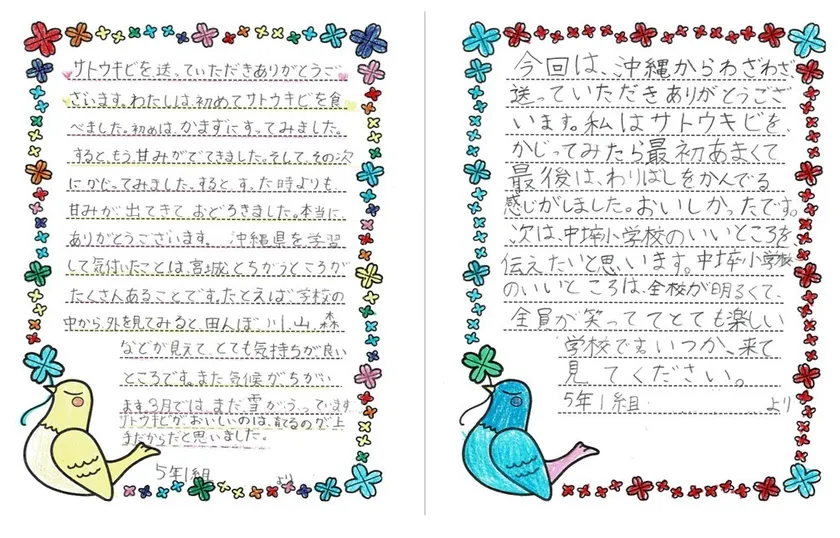 サトウキビを送っていただきありがとうご
ざいます。わたしは、初めてサトウキビを食
べました。初めは、かまずにすってみました。
すると、もう甘みがでてきました。そして、その次
にかじってみました。すると、すった時よりも、
甘みが出てきて、おどろきました。本当に、
ありがとうございます。 沖縄県を学習
して気付いたことは、宮城とちがうところが
たくさんあることです。たとえば、学校の
中から、外を見てみると、田んぼ、川、山、森
などが見えて、とても気持ちが良い
ところです。また気候がちがい
ます。3月では、まだ雪がふっています
サトウキビが、おいしいのは、育てるのが上
手だからだと思いました。
5年1組 より
今回は、沖縄からわざわざ
送っていただきありがとうござ
います。私はサトウキビを、
かじってみたら最初あまくて
最後は、わりばしをかんでる
感じがしました。おいしかったです。
次は、中埣小学校のいいところを、
伝えたいと思います。中埣小学校
のいいところは、全校が明るくて、
全員が笑っててとても楽しい
学校です。いつか、来て
見てください。
5年1組 より